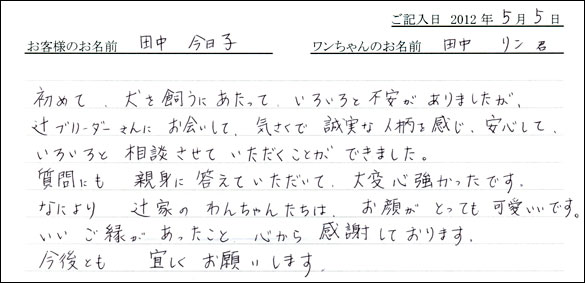 ご記入日 2012 年 5 月 5 日
お客様のお名前 田中 今日子 ワンちゃんのお名前 田中 リン 君
初めて、犬を飼うにあたって、いろいろと不安がありましたが、
辻ブリーダーさんに お会いして、気さくで 誠実な人柄を感じ、安心して、
いろいろと 相談させて いただくことが できました。
質問にも 親身に 答えていただいて、大変心強かったです。
なにより 辻家の わんちゃんたちは、お顔が とっても 可愛いいです。
いい ご縁が あったこと 心から 感謝しております。
今後とも 宜しく お願いします。